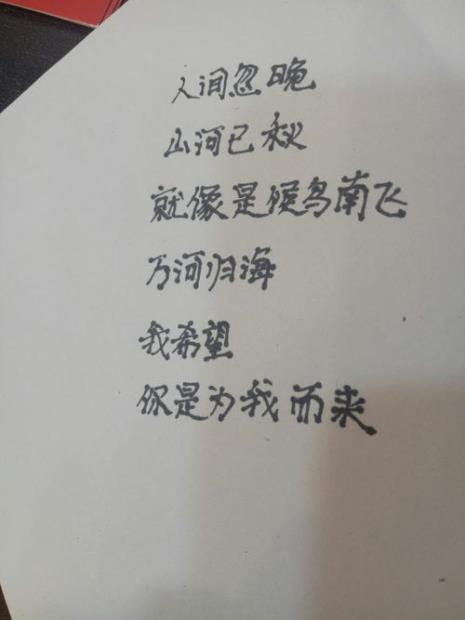 人间忽晚
山河已秋
就像是候鸟南飞
万河归海
我希望
你是为我而来